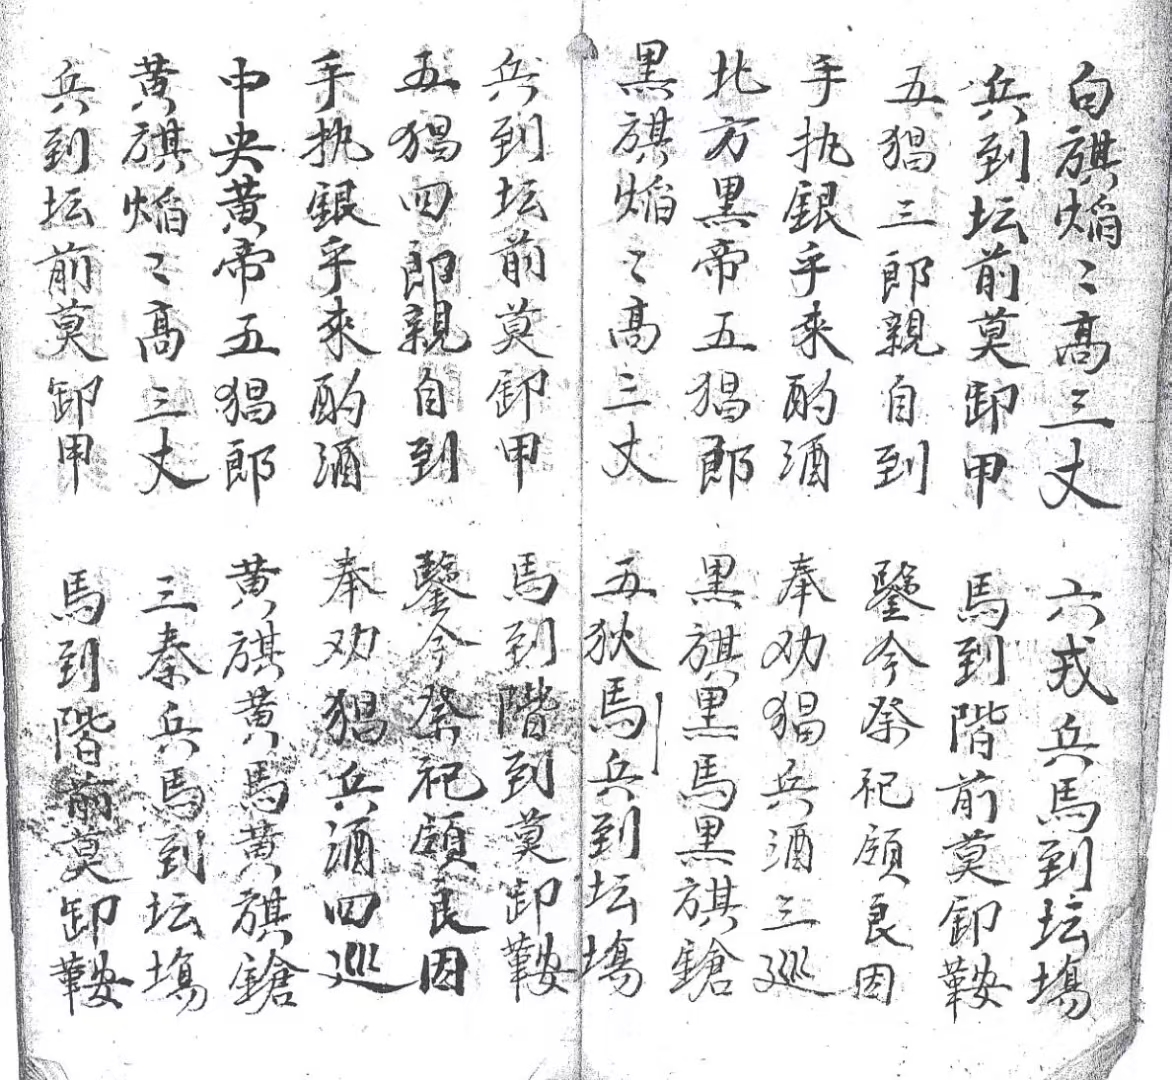 白旗焰〻高三丈 六戎兵馬到坛塲
兵到坛前莫卸甲 馬到階前莫卸鞍
五猖三郎親自到 鑒今祭祀願良因
手执銀乎来酌酒 奉劝猖兵酒三巡
北方黑帝五猖郎 黑旗黑馬黑旗鎗
黑旗焰〻高三丈 五狄馬兵到坛塲
兵到坛前莫卸甲 馬到階到莫卸鞍
五猖四郎親自到 鑒今祭祀願良因
手执銀乎來酌酒 奉劝猖兵酒四巡
中央黄帝五猖郎 黄旗黄馬黄旗鎗
黄旗焰〻高三丈 三秦兵馬到坛塲
兵到坛前莫卸甲 馬到階前莫卸鞍